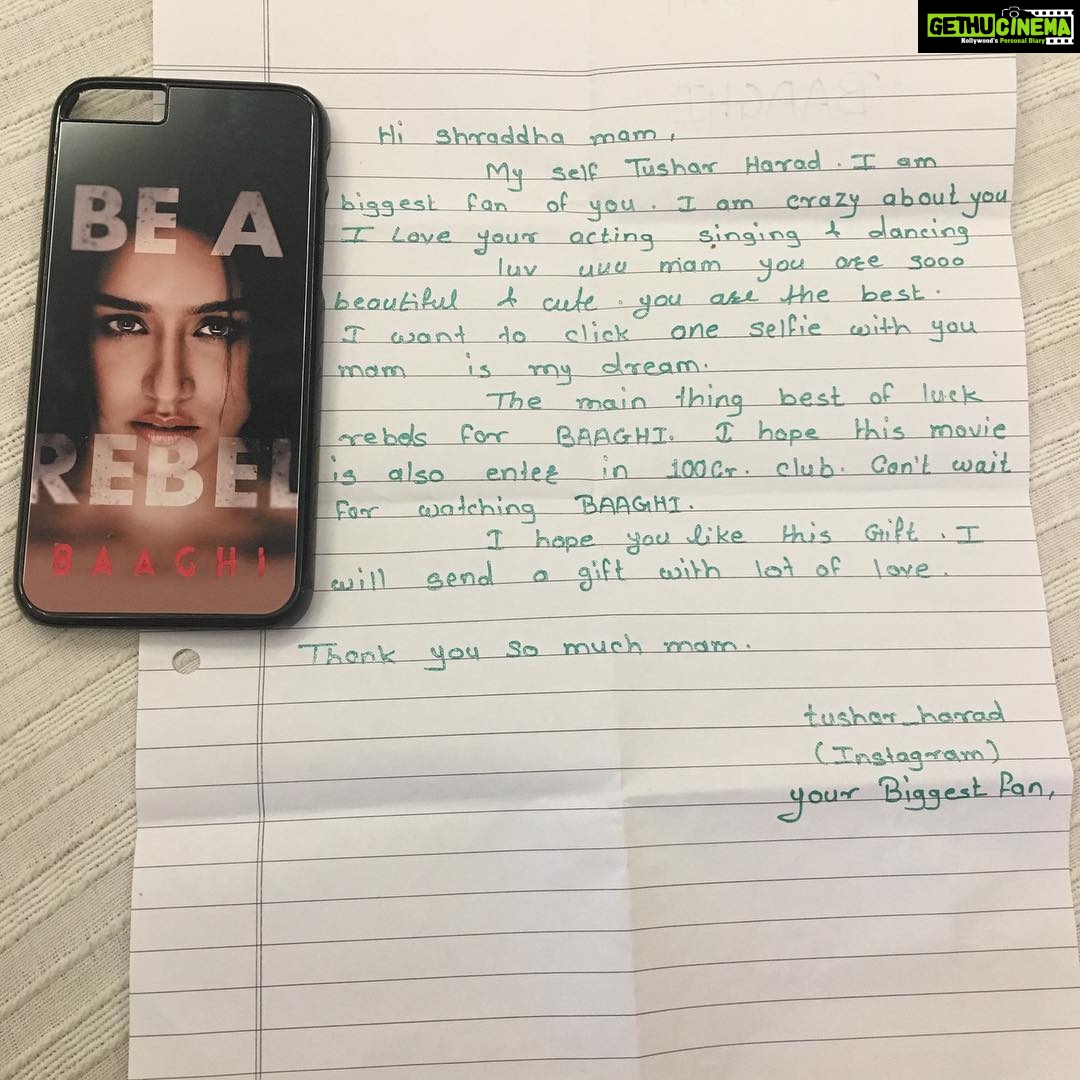 GETHUCINEMA
Kollywood's Personal Diary
BE A
REBEL
BAAGHI
Hi Shraddha mam,
My self Tushar Harad. I am
biggest fan of you. I am crazy about you
I Love your acting singing & dancing
luv uuu mam you are sooo
beautiful & cute. you are the best.
I want to click one selfie with you
mam is my dream.
The main thing best of luck
rebels for BAAGHI. I hope this movie
is also enter in 100Cr. club. Can't wait
for watching BAAGHI.
I hope you like this Gift. I
will send a gift with lot of love.
Thank you so much mam.
tushar_harad
(Instagram)
your Biggest fan,